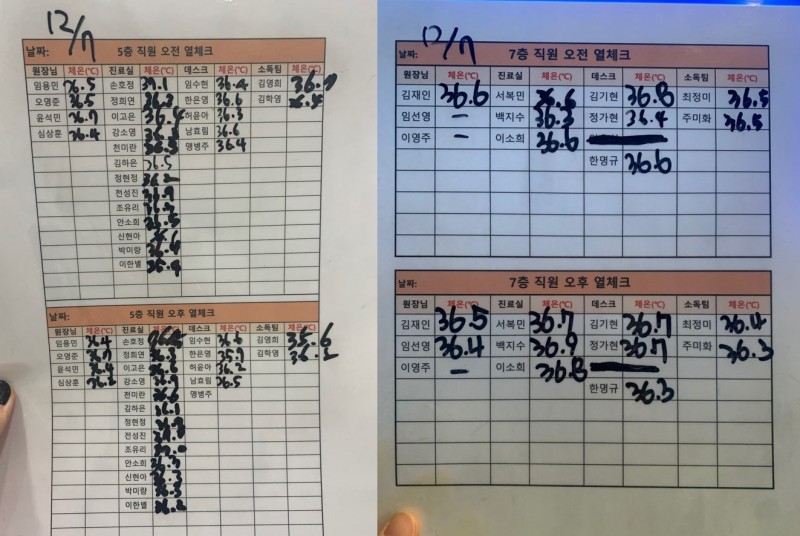 12/7
날짜: 5층 직원 오전 열체크
원장님 체온(℃) 진료실 체온(℃) 데스크 체온(℃) 소독팀 체온(℃)
임용민 36.5 손호정 임수현 36.4 김영희
오영준 36.5 정희연 한은영 36.6 김학영
윤석민 36.7 이고은 36.4 허윤아 36.3
심상훈 36.4 강소영 남효림 36.6
천미란 36.5 맹병주 36.4
김하은 36.5
정현정 36.2
전성진
조유리
안소희 36.5
신현아
박미량 36.4
이한별 36.4
날짜: 5층 직원 오후 열체크
원장님 체온(℃) 진료실 체온(℃) 데스크 체온(℃) 소독팀 체온(℃)
임용민 36.4 손호정 임수현 36.6 김영희 35.6
오영준 정희연 한은영 35.9 김학영
윤석민 36.4 이고은 36.6 허윤아 36.2
심상훈 강소영 36.9 남효림 36.5
천미란 36.6 맹병주
김하은 36.1
정현정
전성진
조유리
안소희 36.3
신현아
박미량 36.5
이한별 36.2
12/7
날짜: 7층 직원 오전 열체크
원장님 체온(℃) 진료실 체온(℃) 데스크 체온(℃) 소독팀 체온(℃)
김재인 36.6 서복민 36.6 김기현 36.8 최정미 36.5
임선영 - 백지수 36.3 정가현 36.4 주미화 36.5
이영주 - 이소희 36.6
한명규 36.6
날짜: 7층 직원 오후 열체크
원장님 체온(℃) 진료실 체온(℃) 데스크 체온(℃) 소독팀 체온(℃)
김재인 36.5 서복민 36.7 김기현 36.7 최정미 36.4
임선영 36.4 백지수 36.9 정가현 36.7 주미화 36.3
이영주 - 이소희 36.8
한명규 36.3